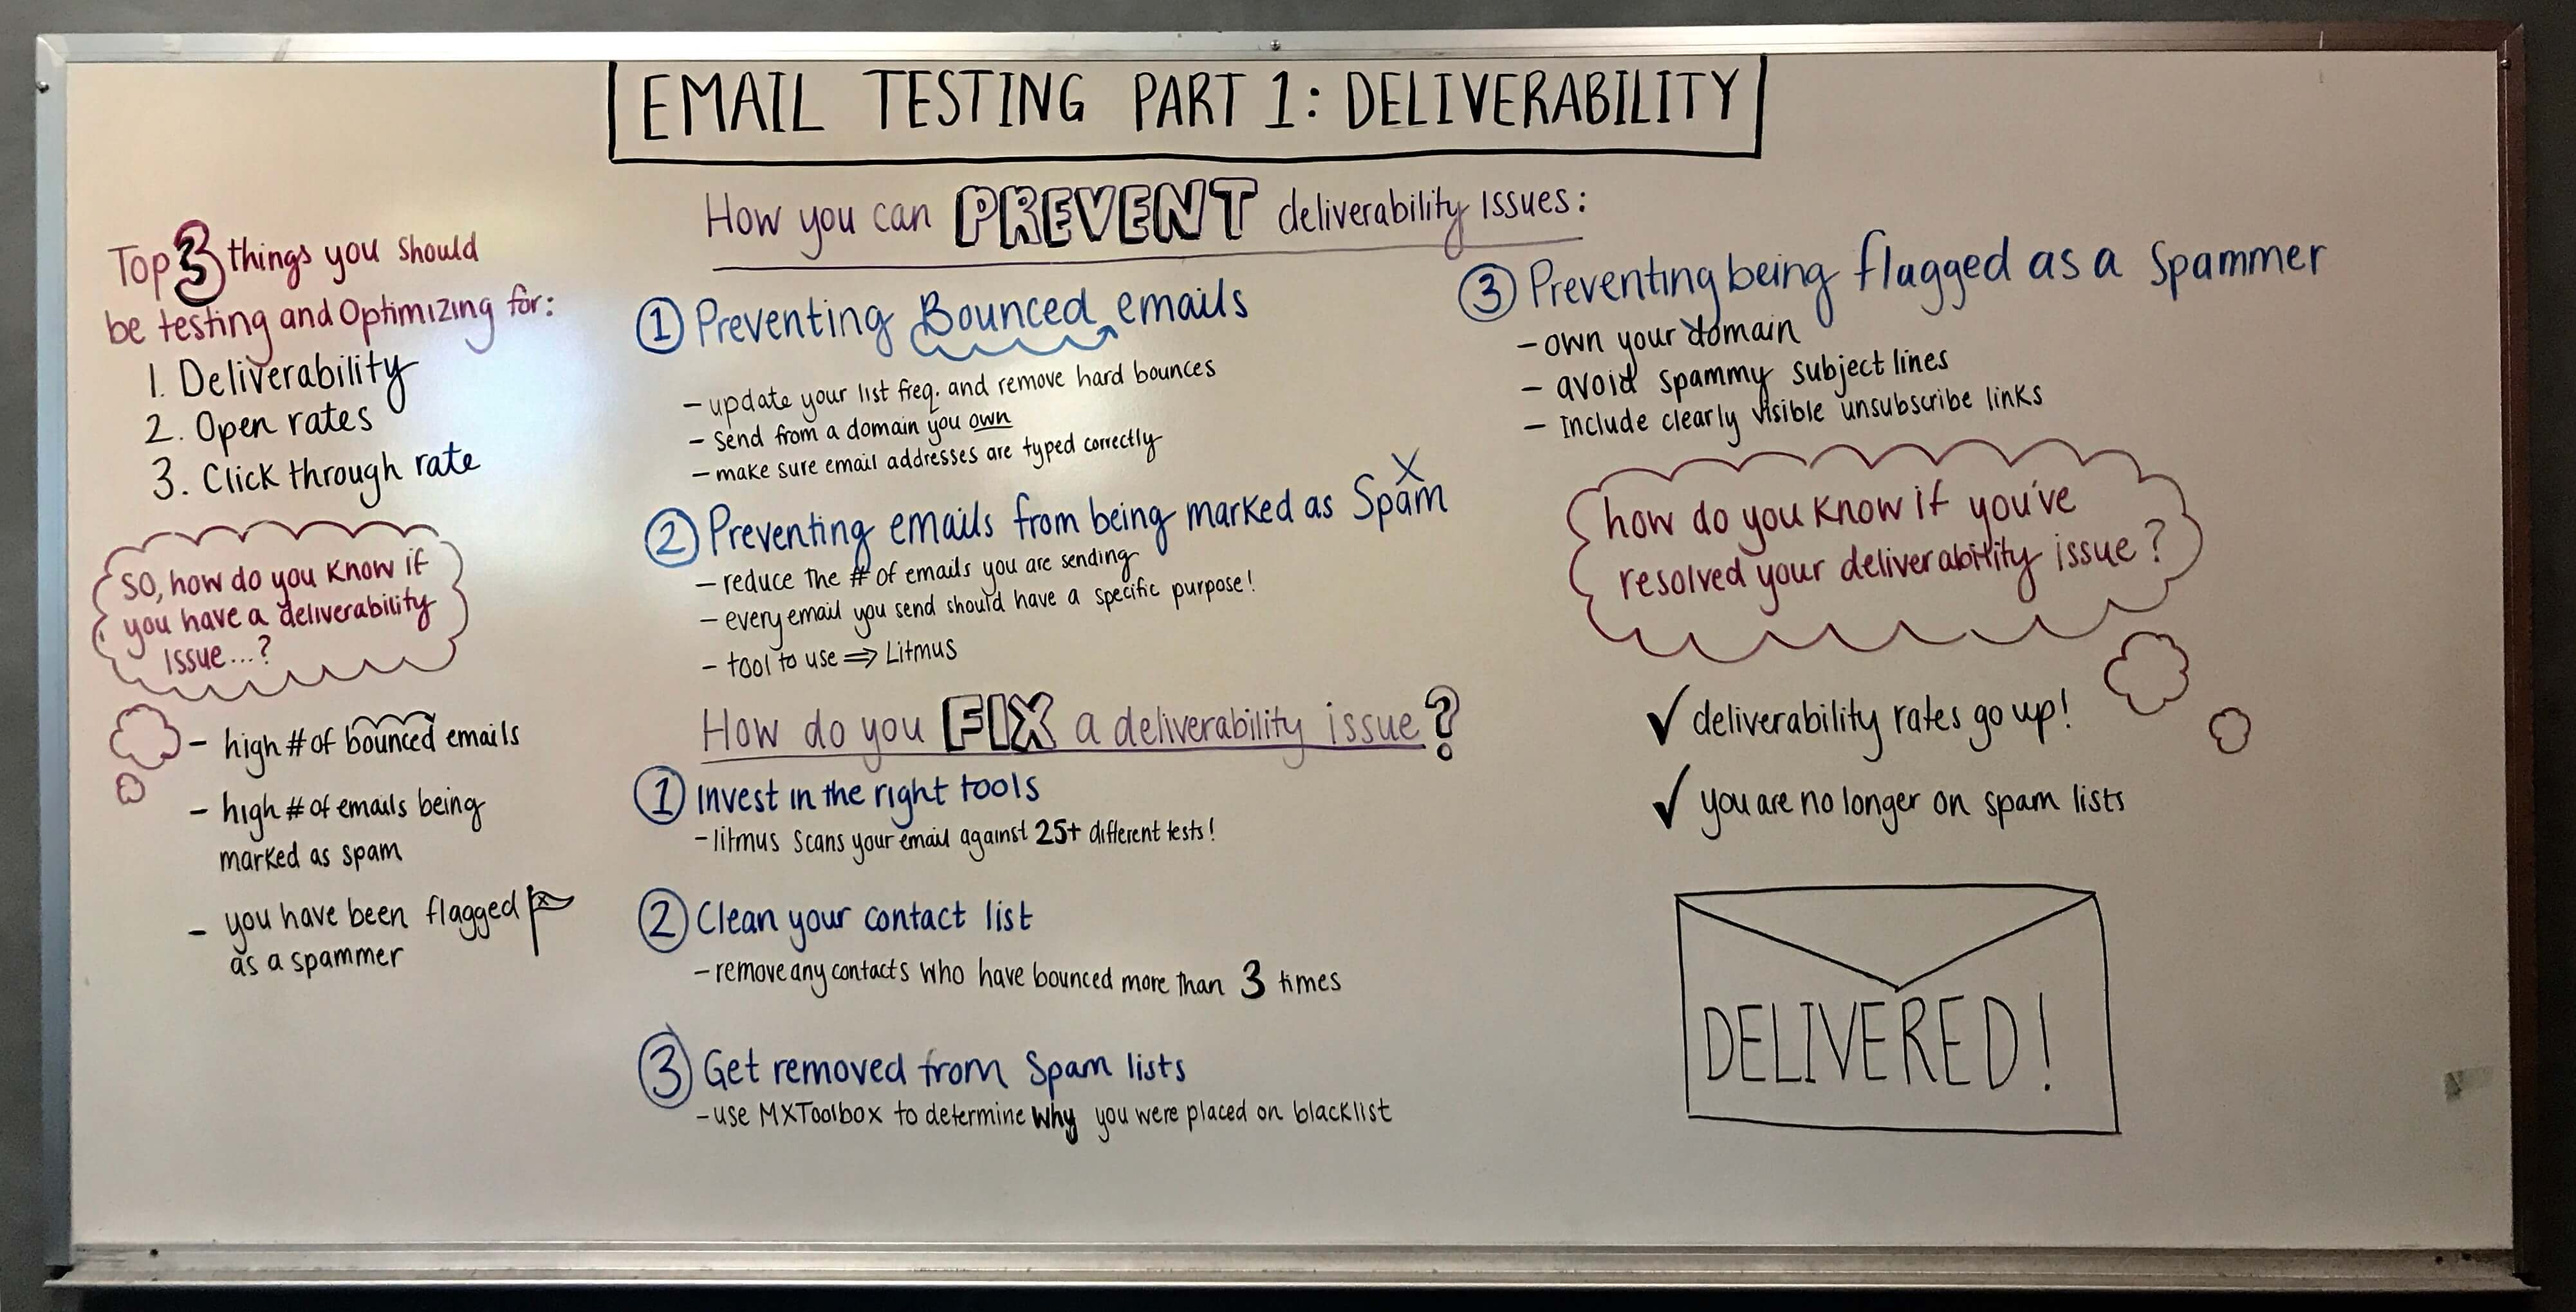 EMAIL TESTING PART 1: DELIVERABILITY
Top 3 things you should
be testing and Optimizing for:
1. Deliverability
2. Open rates
3. Click through rate
SO, how do you know if
you have a deliverability
issue...?
- high # of bounced emails
- high # of emails being
marked as spam
- you have been flagged
as a spammer
How you can PREVENT deliverability issues:
1 Preventing Bounced emails
- update your list freq. and remove hard bounces
- send from a domain you own
- make sure email addresses are typed correctly
2 Preventing emails from being marked as Spam
- reduce the # of emails you are sending
- every email you send should have a specific purpose!
- tool to use ⇒ Litmus
3 Preventing being flagged as a Spammer
- own your domain
- avoid spammy subject lines
- Include clearly visible unsubscribe links
How do you FIX a deliverability issue?
1 Invest in the right tools
- litmus scans your email against 25+ different tests!
2 Clean your contact list
- remove any contacts who have bounced more than 3 times
3 Get removed from Spam lists
- use MXToolbox to determine why you were placed on blacklist
how do you know if you've
resolved your deliverability issue?
✓ deliverability rates go up!
✓ you are no longer on spam lists
DELIVERED!